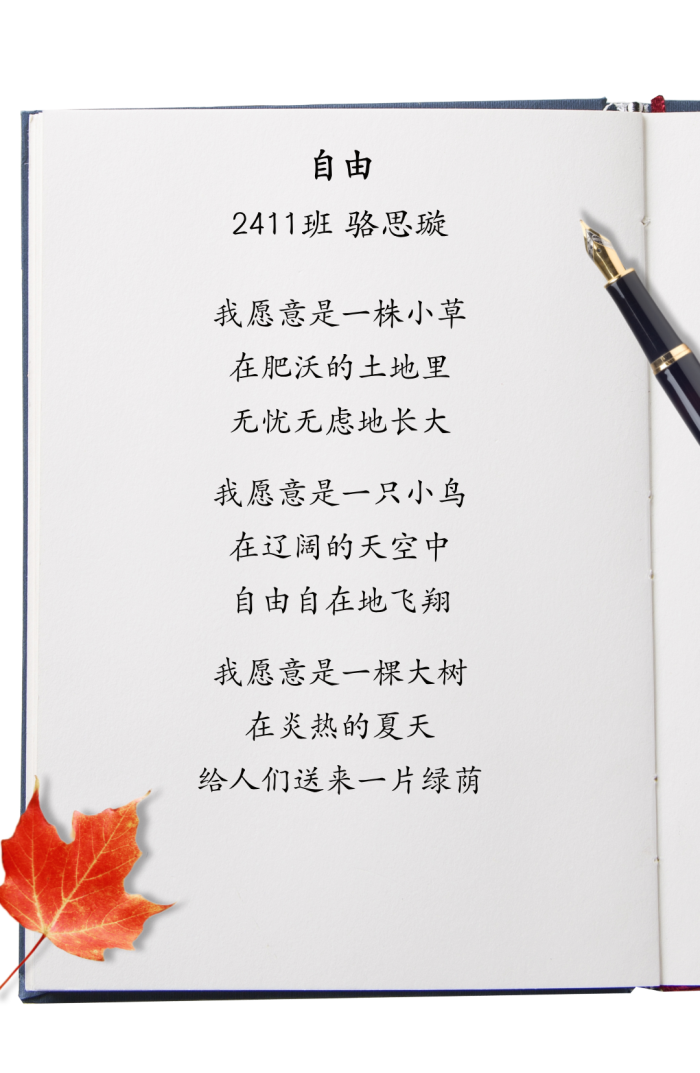 自由
2411班 骆思璇
我愿意是一株小草
在肥沃的土地里
无忧无虑地长大
我愿意是一只小鸟
在辽阔的天空中
自由自在地飞翔
我愿意是一棵大树
在炎热的夏天
给人们送来一片绿荫